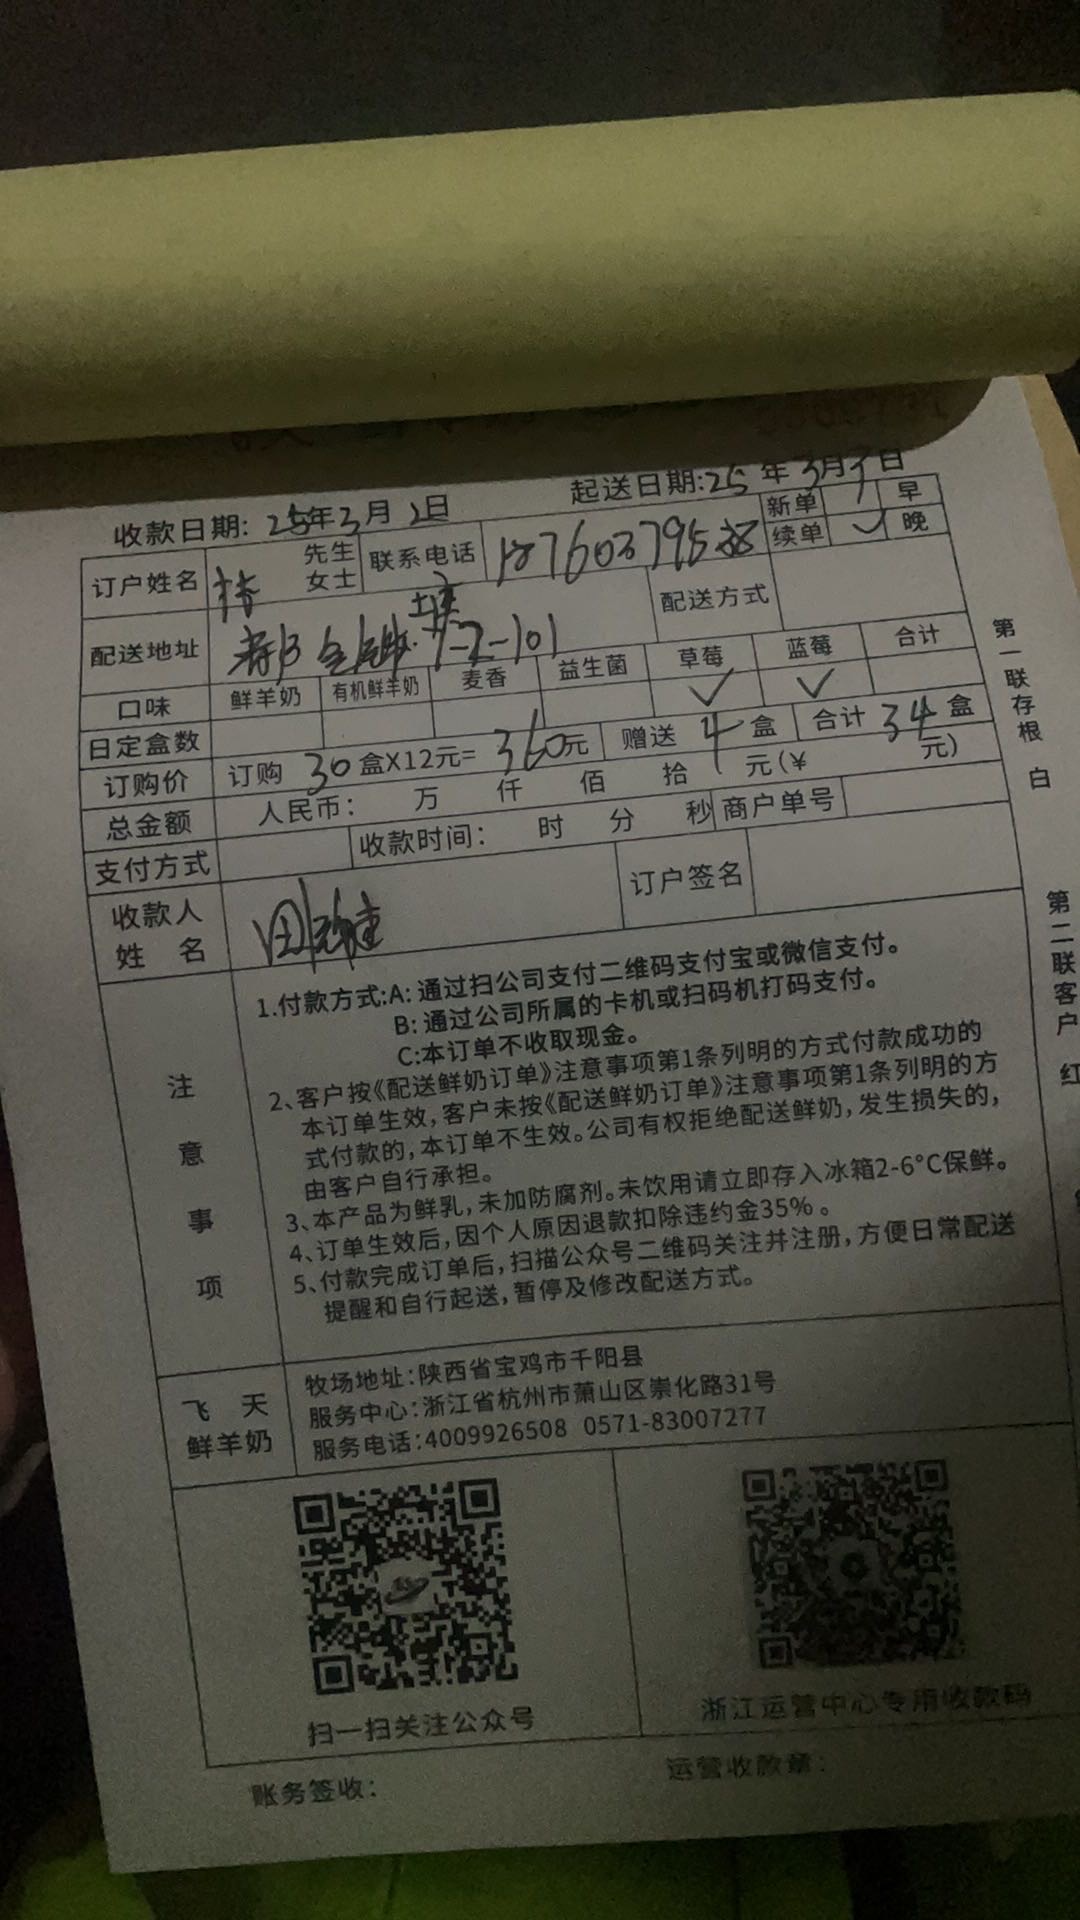 收款日期: 25年3月2日 起送日期:25年3月3日
订户姓名 林 先生 女士 联系电话 新单 早
续单 ✓ 晚
配送地址 7-2-101 配送方式
口味 鲜羊奶 有机鲜羊奶 麦香 益生菌 草莓 蓝莓 合计
日定盒数 ✓ ✓
订购价 订购 30 盒X12元= 360元 赠送 4 盒 合计 34 盒
总金额 人民币: 万 仟 佰 拾 元(¥ 元)
支付方式 收款时间: 时 分 秒 商户单号
收款人 订户签名
姓 名
注意事项
1.付款方式:A: 通过扫公司支付二维码支付宝或微信支付。
B: 通过公司所属的卡机或扫码机打码支付。
C:本订单不收取现金。
2、客户按《配送鲜奶订单》注意事项第1条列明的方式付款成功的
本订单生效, 客户未按《配送鲜奶订单》注意事项第1条列明的方
式付款的, 本订单不生效。公司有权拒绝配送鲜奶, 发生损失的,
由客户自行承担。
3、本产品为鲜乳, 未加防腐剂。未饮用请立即存入冰箱2-6°C保鲜。
4、订单生效后, 因个人原因退款扣除违约金35%。
5、付款完成订单后, 扫描公众号二维码关注并注册, 方便日常配送
提醒和自行起送, 暂停及修改配送方式。
飞 天
鲜羊奶
牧场地址:陕西省宝鸡市千阳县
服务中心:浙江省杭州市萧山区崇化路31号
服务电话:4009926508 0571-83007277
扫一扫关注公众号
浙江运营中心专用收款码
账务签收:
运营收款章:
第一联存根 白
第二联客户 红